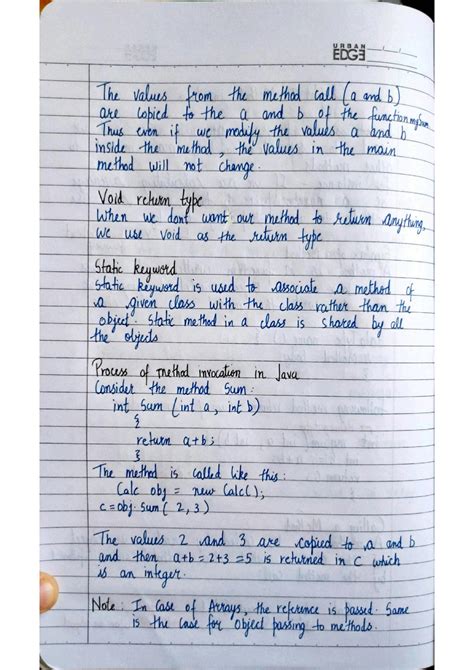 URBAN
EDGE
The values from the method call (a and b)
are copied to the a and b of the function mySum
Thus even if we modify the values a and b
inside the method, the values in the main
method will not change.
Void return type
When we dont want our method to return anything,
we use void as the return type
Static keyword
Static keyword is used to associate a method of
a given class with the class rather than the
object. Static method in a class is shared by all
the objects
Process of method invocation in Java
Consider the method Sum:
int Sum (int a, int b)
{
return a+b;
}
The method is called like this:
Calc obj = new Calc();
c = obj. Sum (2, 3)
The values 2 and 3 are copied to a and b
and then a+b = 2+3 = 5 is returned in C which
is an integer.
Note: In Case of Arrays, the reference is passed. Same
is the Case for Object passing to methods.